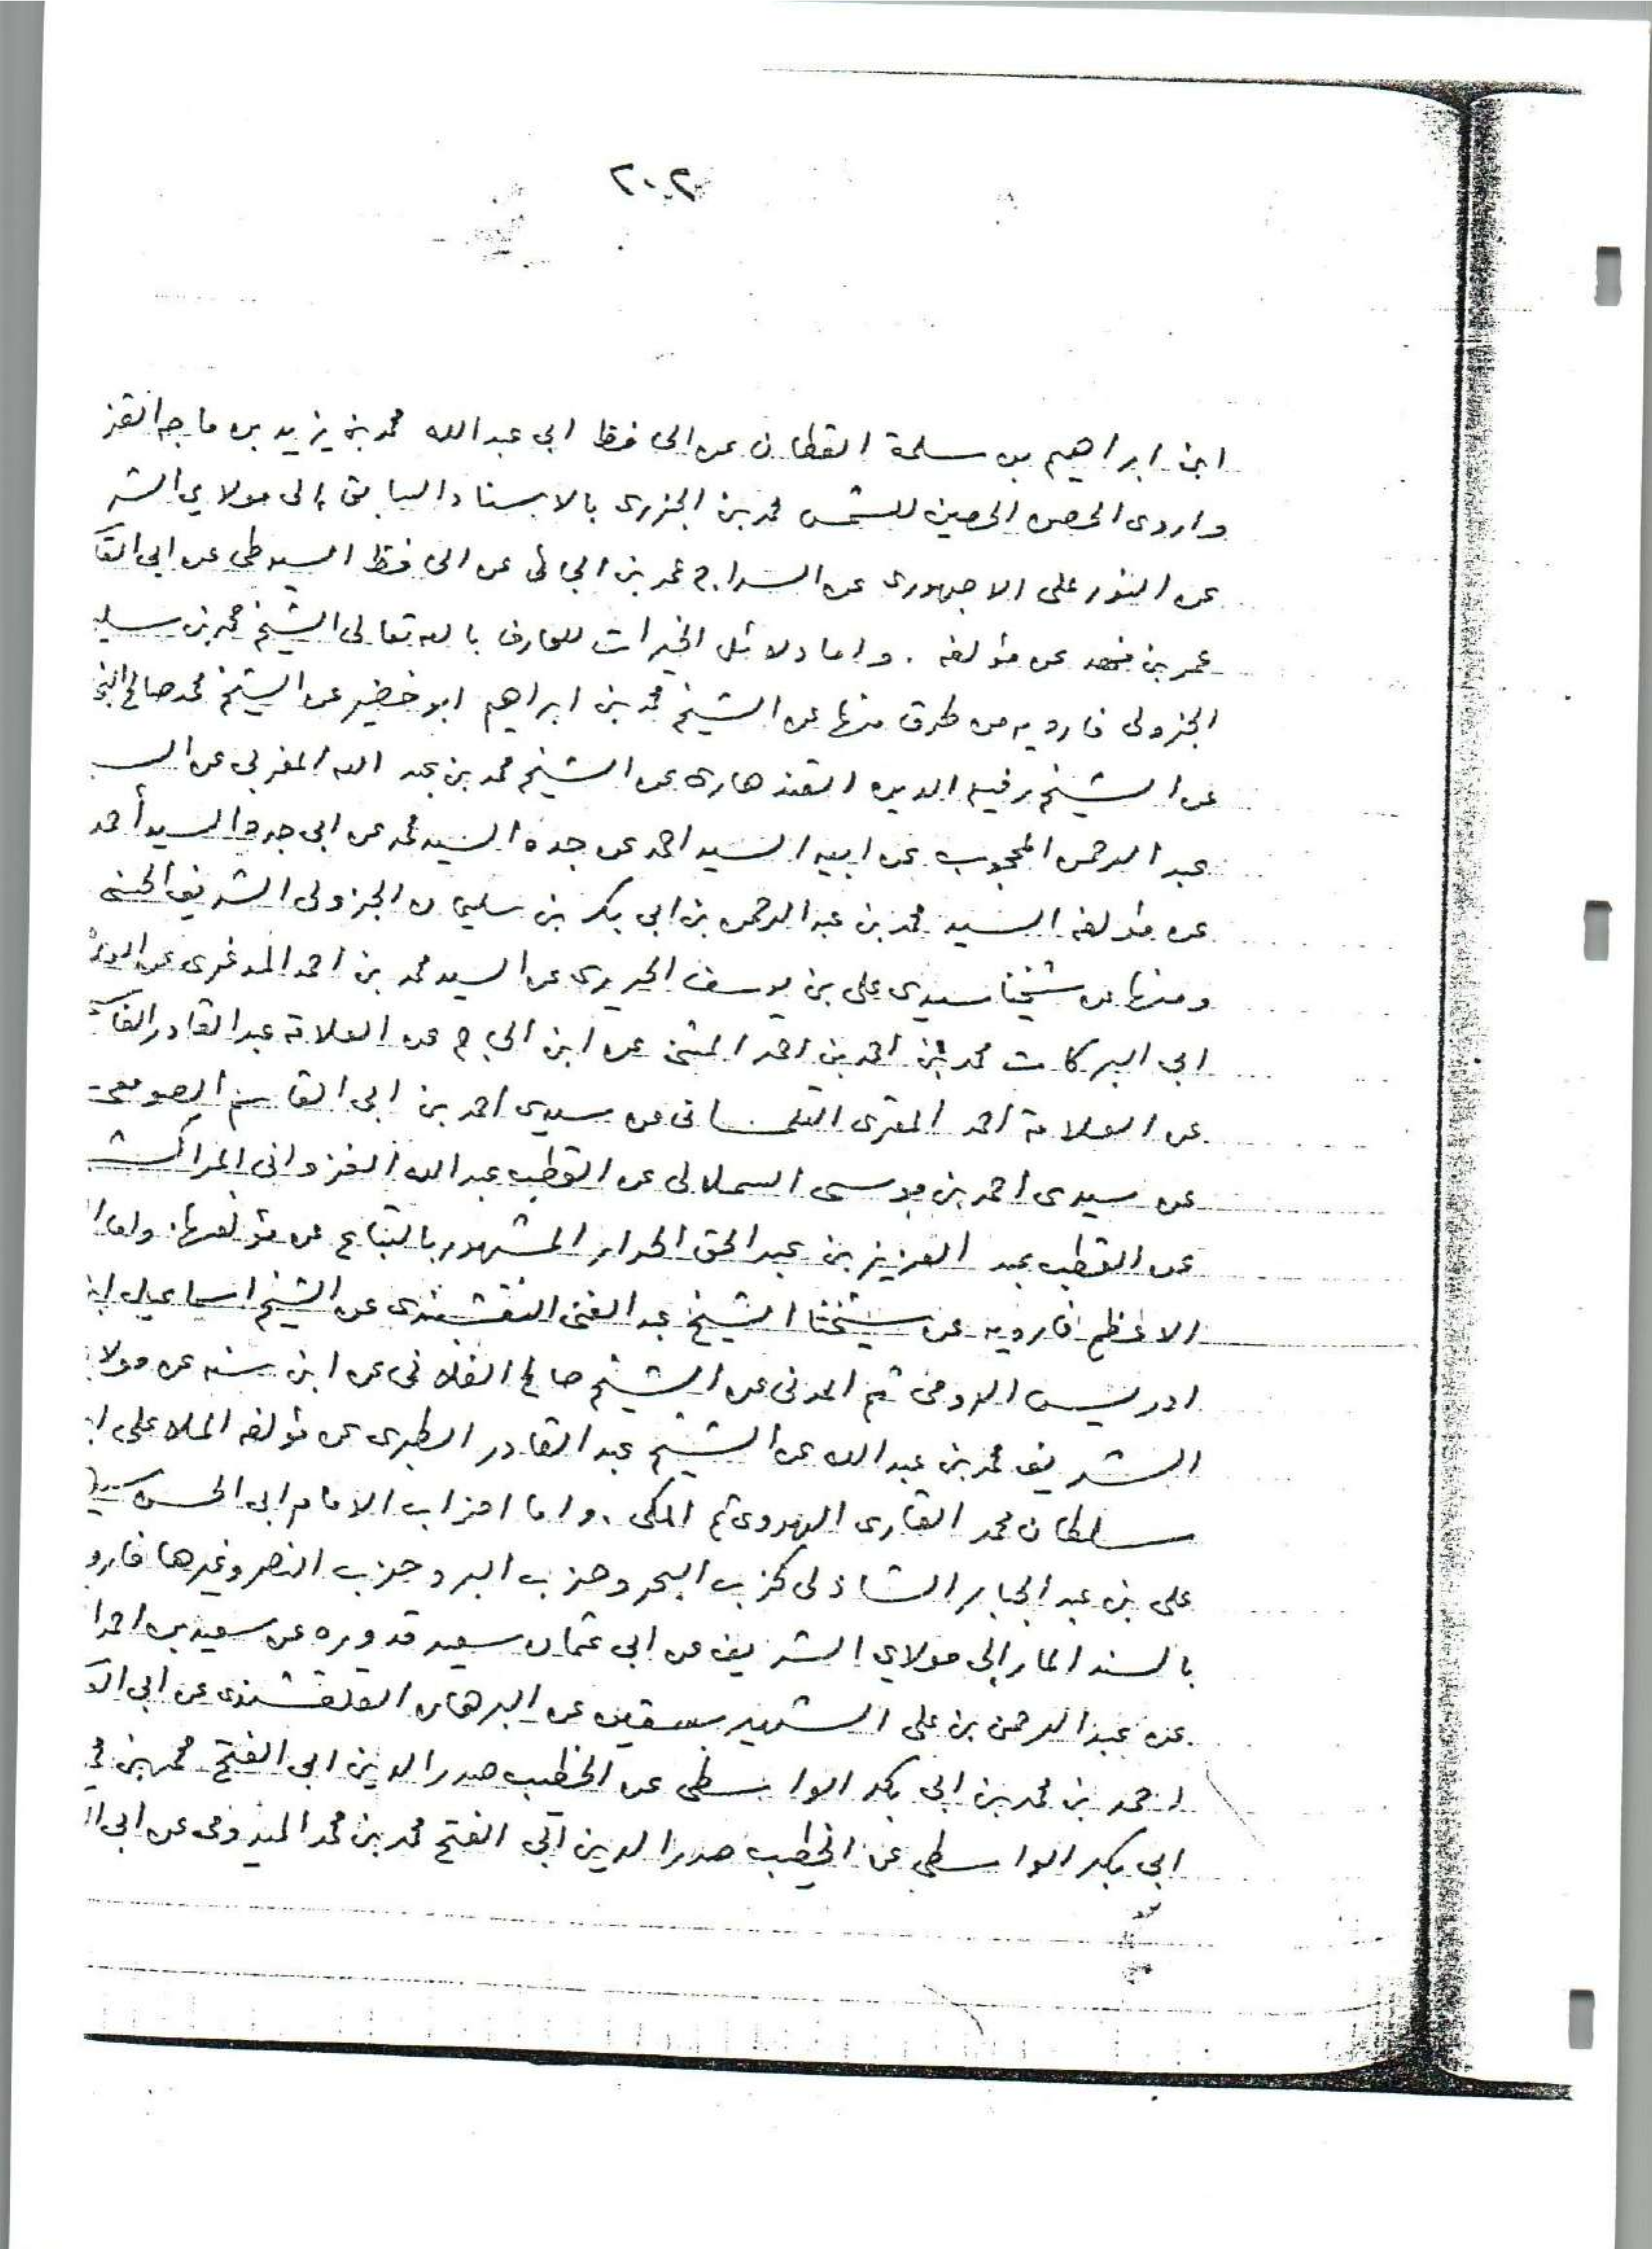 ٢٠٢
ابن ابراهيم بن سلمة القطان عن الحافظ ابي عبدالله محمد بن يزيد بن ماجه القز
واروى الحصن الحصين للشمس محمد بن الجزرى بالاسناد السابق إلى مولاي الشر
عن النور على الاجهورى عن السراج عمر بن الجائى عن الحافظ السيوطى عن ابي القا
عمر بن فهد عن مؤلفه . واما دلائل الخيرات للعارف بالله تعالى الشيخ محمد بن سليـ
الجزولى فارويه من طرق منها عن الشيخ محمد بن ابراهيم ابو خضير عن الشيخ محمد صالح البخـ
عن الشيخ رفيع الدين القندهارى عن الشيخ محمد بن عبد الله المغربي عن السـ
عبد الرحمن المحجوب عن ابيه السيد احمد عن جده السيد محمد عن ابي جده السيد أحمد
عن مؤلفه السيد محمد بن عبدالرحمن بن ابي بكر بن سليمان الجزولى الشريف الحسنى
ومنها عن شيخنا سيدى على بن يوسف الحريرى عن السيد محمد بن احمد المدغرى عن
ابي البركات محمد بن احمد بن احمد المثنى عن ابن الحاج عن العلامة عبد القادر الفا
عن العلامة احمد المقرى التلمسانى عن سيدى احمد بن ابى القاسم الصومعى
عن سيدى احمد بن موسى السملالى عن القطب عبد الله الغزوانى المراكشـ
عن القطب عبد العزيز بن عبد الحق الحرار المشهور بالتباع عن مؤلفها. واما ا
الاعظم فارويه عن شيخنا الشيخ عبد الغنى النقشبندى عن الشيخ اسماعيل ابـ
ادريس الرومى ثم المدنى عن الشيخ صالح الفلانى عن ابن سنه عن مولا
الشريف محمد بن عبد الله عن الشيخ عبد القادر الطبرى عن مؤلفه الملا على ا
سلطان محمد القارى الهروى ثم المكى . واما احزاب الامام ابى الحسن سيد
على بن عبد الجبار الشاذلى كحزب البحر وحزب البر وحزب النصر وغيرها فارو
بالسند المار إلى مولاي الشريف عن ابى عثمان سعيد قدوره عن سعيد بن احمد ا
عن عبد الرحمن بن على الشهير بسقين عن البرهان القلقشندى عن ابى ال
احمد بن محمد بن ابى بكر الواسطى عن الخطيب صدر الدين ابى الفتح محمد بن مح
ابي بكر الواسطى عن الخطيب صدر الدين ابى الفتح محمد بن محمد الميدومى عن ابى ا